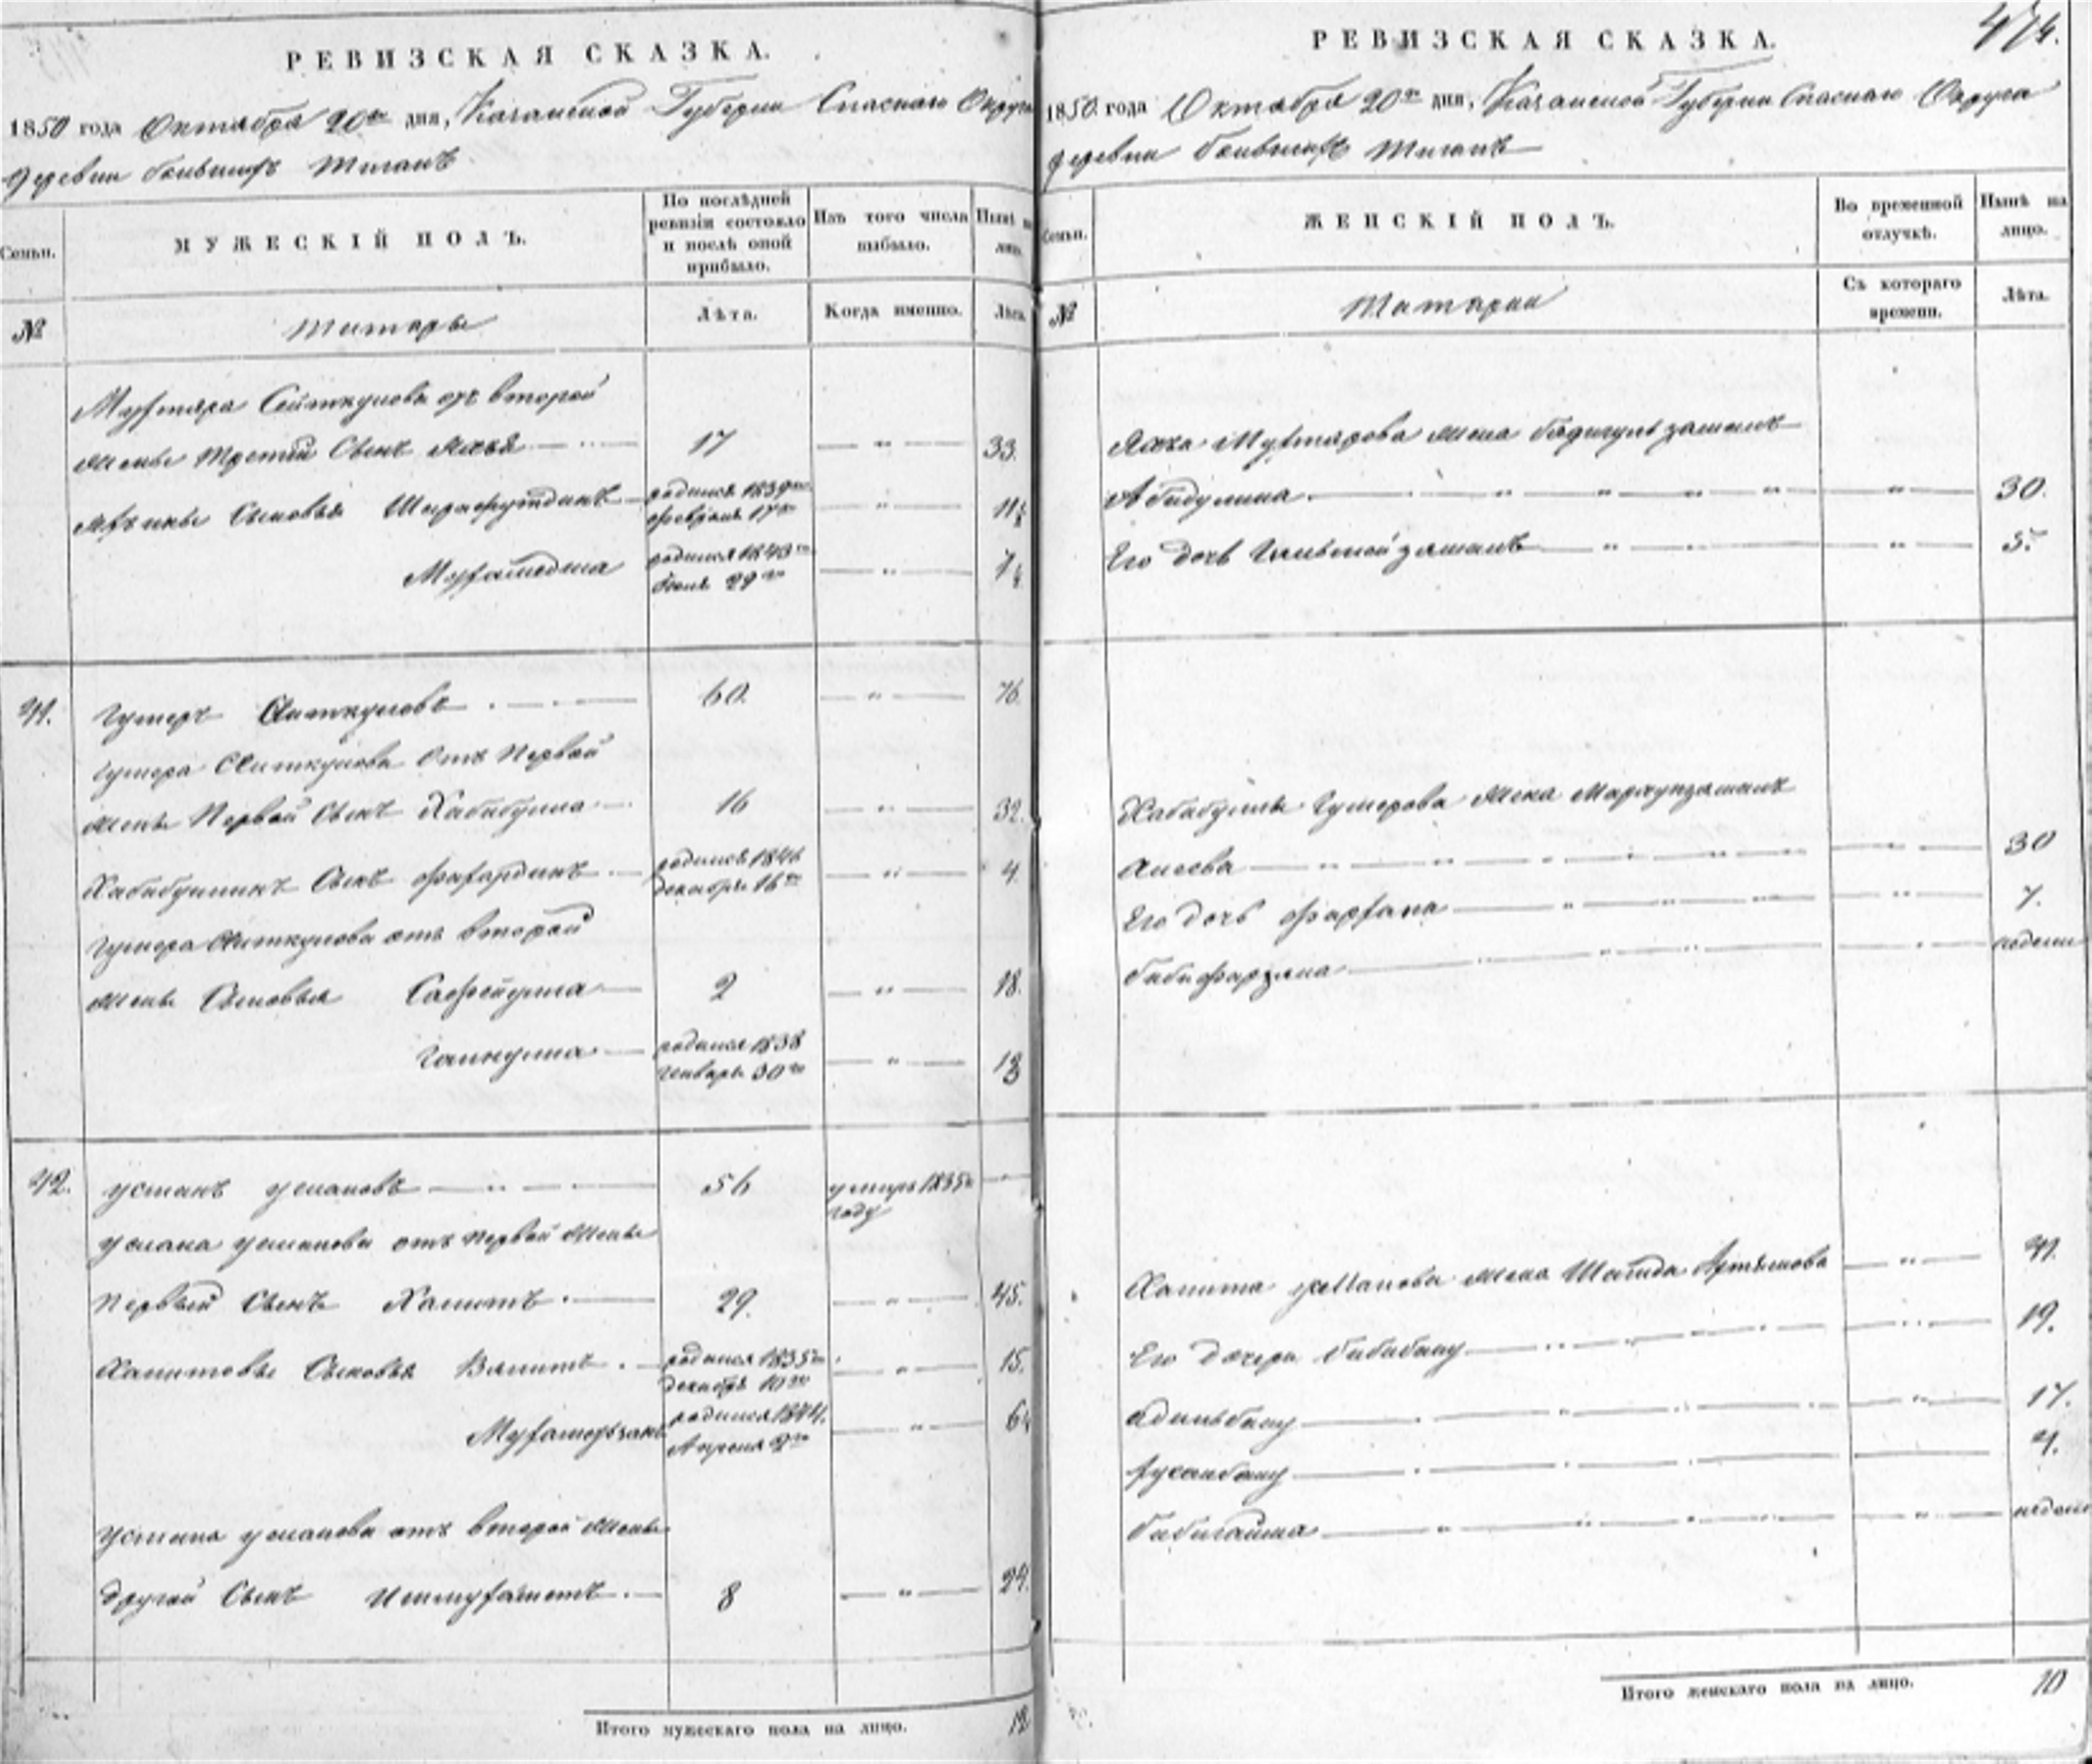 РЕВИЗСКАЯ СКАЗКА.
1850 года Октября 20го дня, Казанской Губернии Спаскаго Округа
деревни большихъ Тиганъ
Семьи.
МУЖЕСКІЙ ПОЛЪ.
По послѣдней ревизіи состояло и послѣ оной прибыло.
Изъ того числа выбыло.
Нынѣ на лицо.
№
Татары
Лѣта.
Когда именно.
Лѣта.
Мухтара Сейткулова отъ второй
жены третій Сынъ Яхья 17 33.
Сыновья Шарафутдинъ родился 1839го февраля 17го 11½
Мухаметша родился 1843го Июня 29го 7¼
41. Гумеръ Ситкуловъ 60. 76.
Гумера Ситкулова отъ Первой
жены Первой Сынъ Хабибулла 16 32.
Хабибуллинъ Сынъ Фахардинъ родился 1846 декабря 16го 4.
Гумера Ситкулова отъ второй
жены Сыновья Сафейулла 2 18.
Гайнулла родился 1838 генваря 30го
42. Усманъ Усмановъ 56 умеръ 1835го году
Усмана Усманова отъ первой жены
Первый Сынъ Хамитъ 29. 45.
Хамитовы Сыновья Вялитъ родился 1835го декабря 10го 15.
Мухамезянъ родился 1844. Апреля 2го
Усмана Усманова отъ второй жены
другой Сынъ Ишмухаметъ 8 24.
Итого мужескаго пола на лицо. 12
474.
РЕВИЗСКАЯ СКАЗКА.
1850. года Октября 20го дня, Казанской Губернии Спаскаго Округа
деревни большихъ Тиганъ
Семьи.
ЖЕНСКІЙ ПОЛЪ.
Во временной отлучкѣ.
Нынѣ на лицо.
№
Татарки
Съ котораго времени.
Лѣта.
Яхьи Мухтарова жена бядигульзаманъ
Абидулина 30.
Его дочь 5.
Хабибуллы Гумерова жена
Аитова 30
Его дочь Фархана 7.
бибифарзяна недели
Хамита Усманова жена Шагида Артемова 41.
Его дочери бибибану 19.
адильбану 17.
рукаибану 4.
бибигайша недели
Итого женскаго пола на лицо. 10